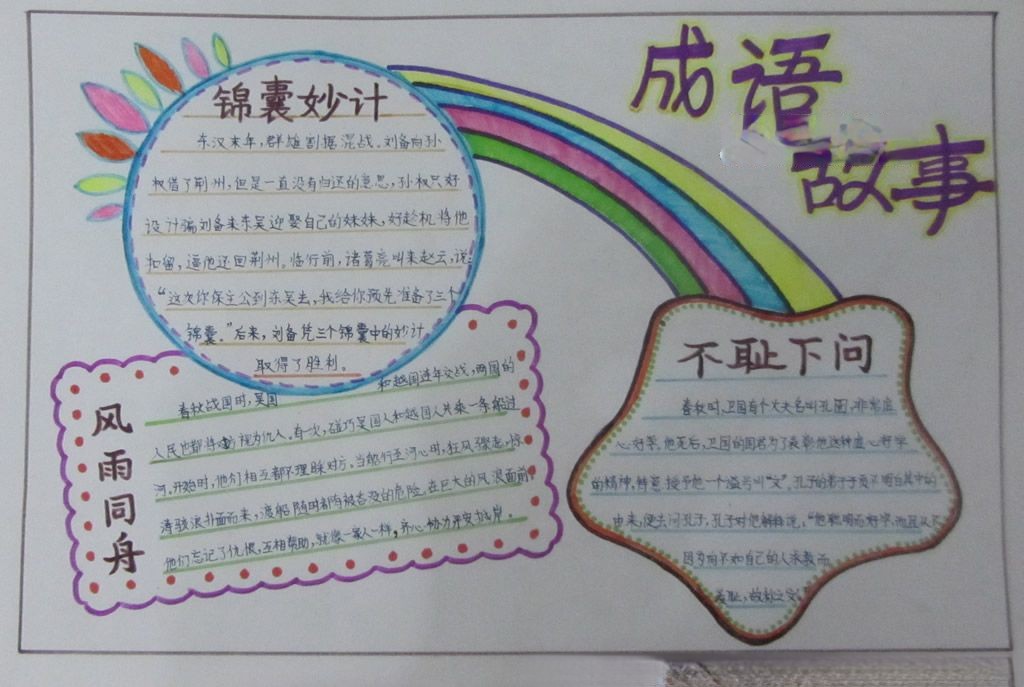 成语
故事
锦囊妙计
东汉末年，群雄割据混战。刘备向孙
权借了荆州，但是一直没有归还的意思，孙权只好
设计骗刘备来东吴迎娶自己的妹妹，好趁机将他
扣留，逼他还回荆州。临行前，诸葛亮叫来赵云，说：
“这次你保主公到东吴去，我给你预先准备了三个
锦囊。”后来，刘备凭三个锦囊中的妙计
取得了胜利。
风雨同舟
春秋战国时，吴国和越国连年交战，两国的
人民也都将视为仇人。有一次，碰巧吴国人和越国人共乘一条船过
河。开始时，他们相互都不理睬对方。当船行至河心时，狂风骤起，惊
涛骇浪扑面而来，渡船随时都有被吞没的危险。在巨大的风浪面前，
他们忘记了仇恨，互相帮助，就像一家人一样，齐心协力平安抵岸。
不耻下问
春秋时，卫国有个大夫名叫孔圉，非常虚
心好学。他死后，卫国的国君为了表彰他这种虚心好学
的精神，特意授予他一个谥号叫“文”。孔子的弟子子贡不明白其中的
由来，便去问孔子，孔子对他解释说，“他聪明而好学，而且从不
因为向不如自己的人求教而
羞耻，故称之文。”